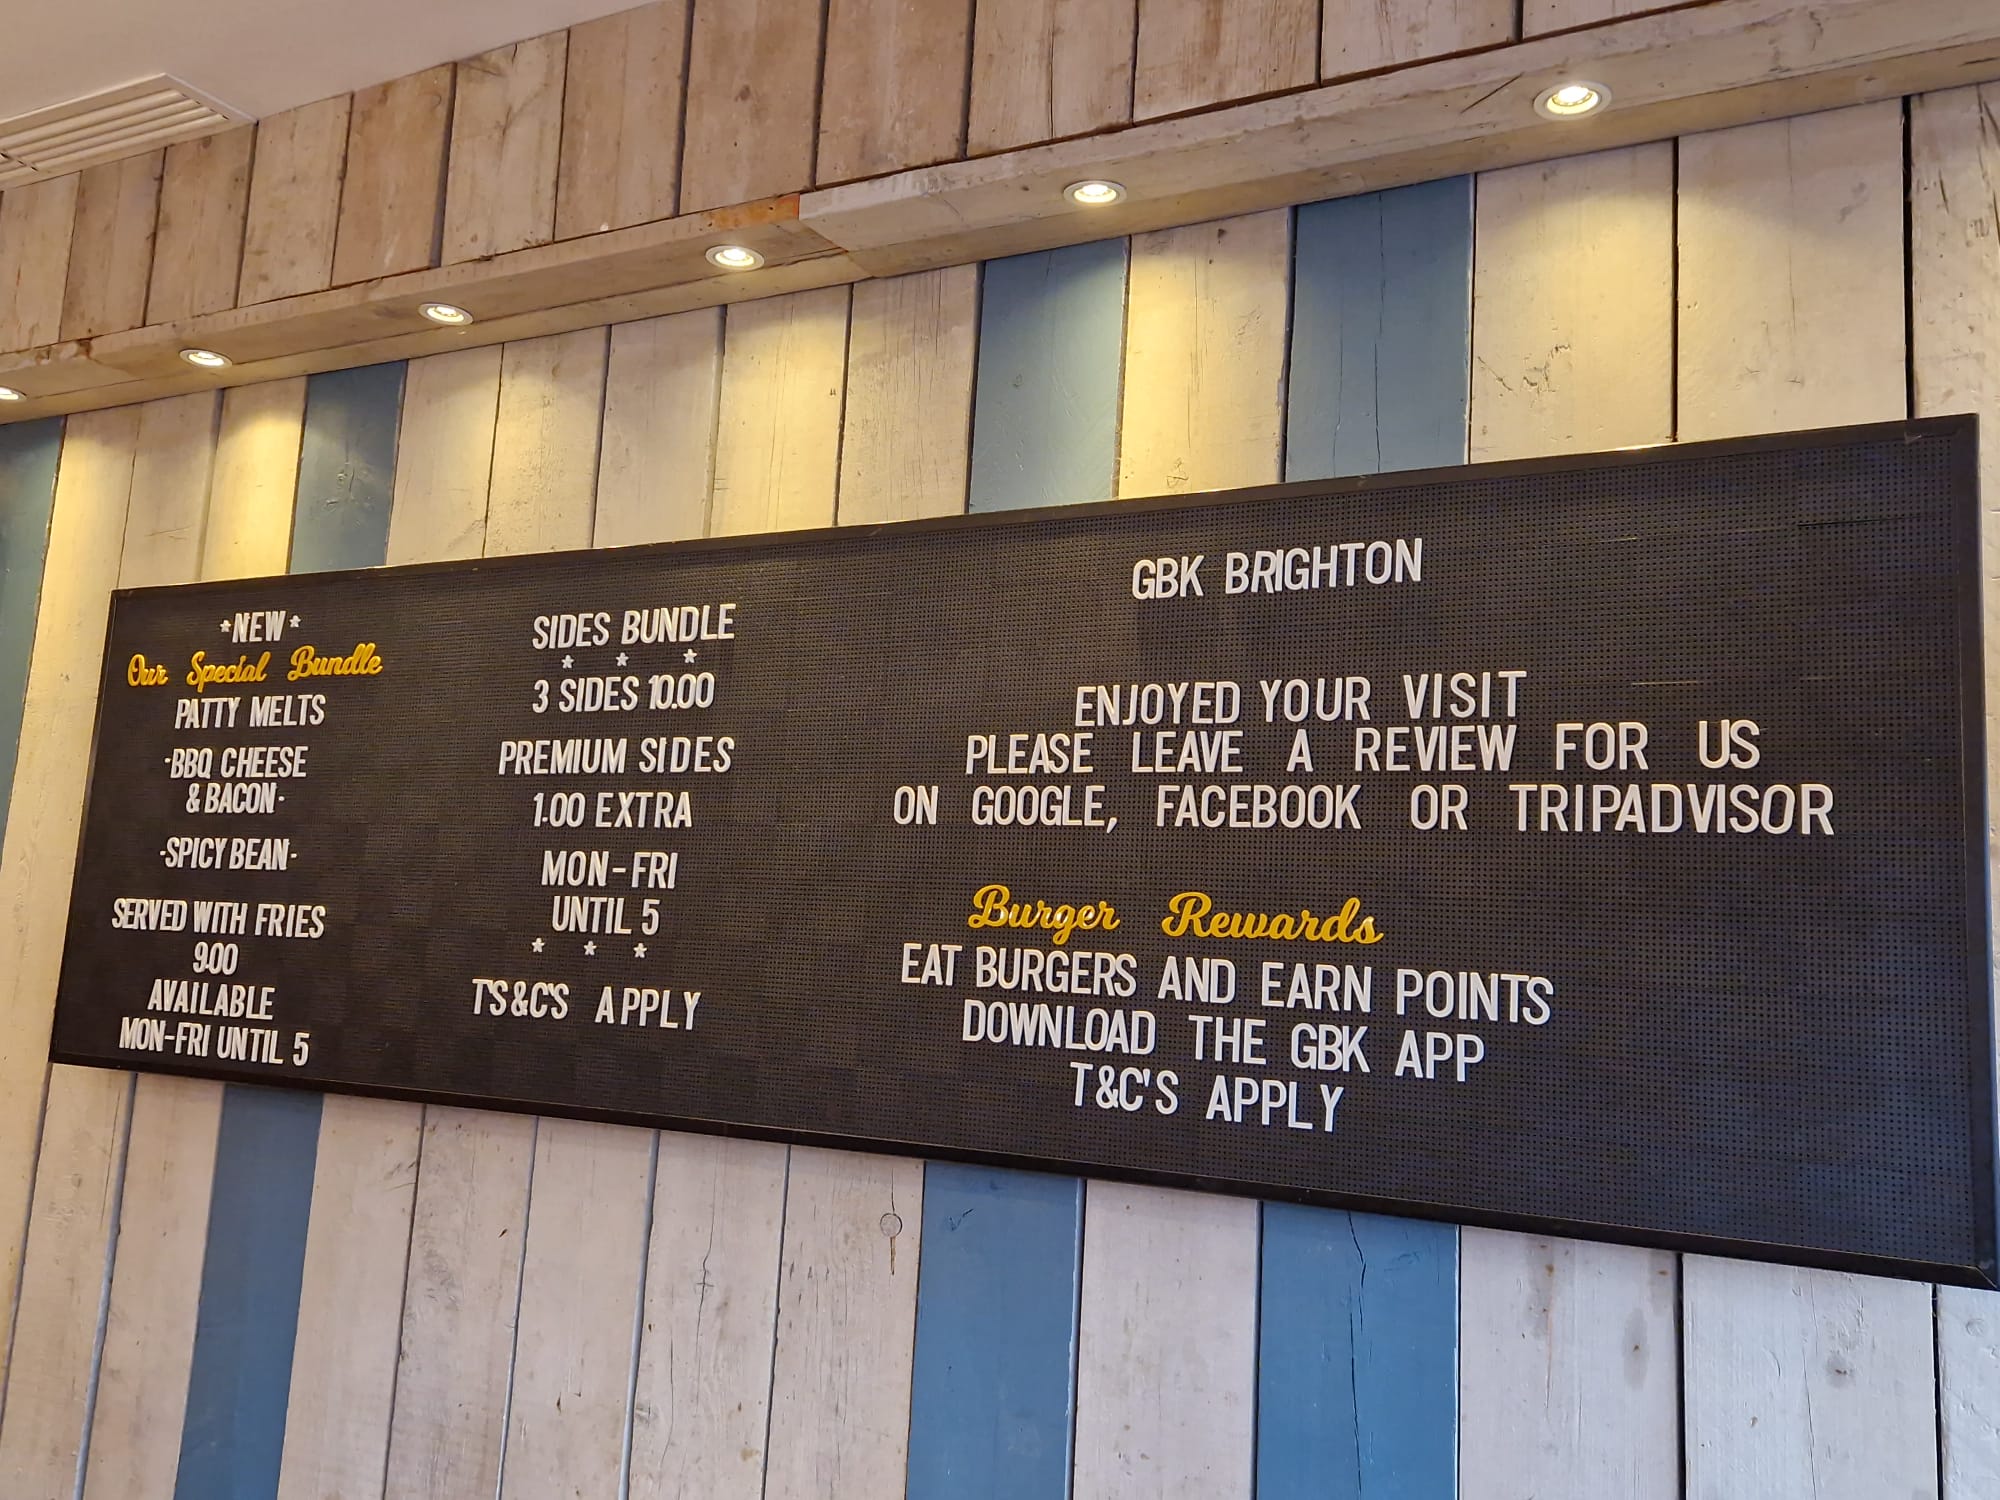 *NEW*
Our Special Bundle
PATTY MELTS
-BBQ CHEESE
& BACON-
-SPICY BEAN-
SERVED WITH FRIES
9.00
AVAILABLE
MON-FRI UNTIL 5
SIDES BUNDLE
* * *
3 SIDES 10.00
PREMIUM SIDES
1.00 EXTRA
MON-FRI
UNTIL 5
* * *
T'S&C'S APPLY
GBK BRIGHTON
ENJOYED YOUR VISIT
PLEASE LEAVE A REVIEW FOR US
ON GOOGLE, FACEBOOK OR TRIPADVISOR
Burger Rewards
EAT BURGERS AND EARN POINTS
DOWNLOAD THE GBK APP
T&C'S APPLY